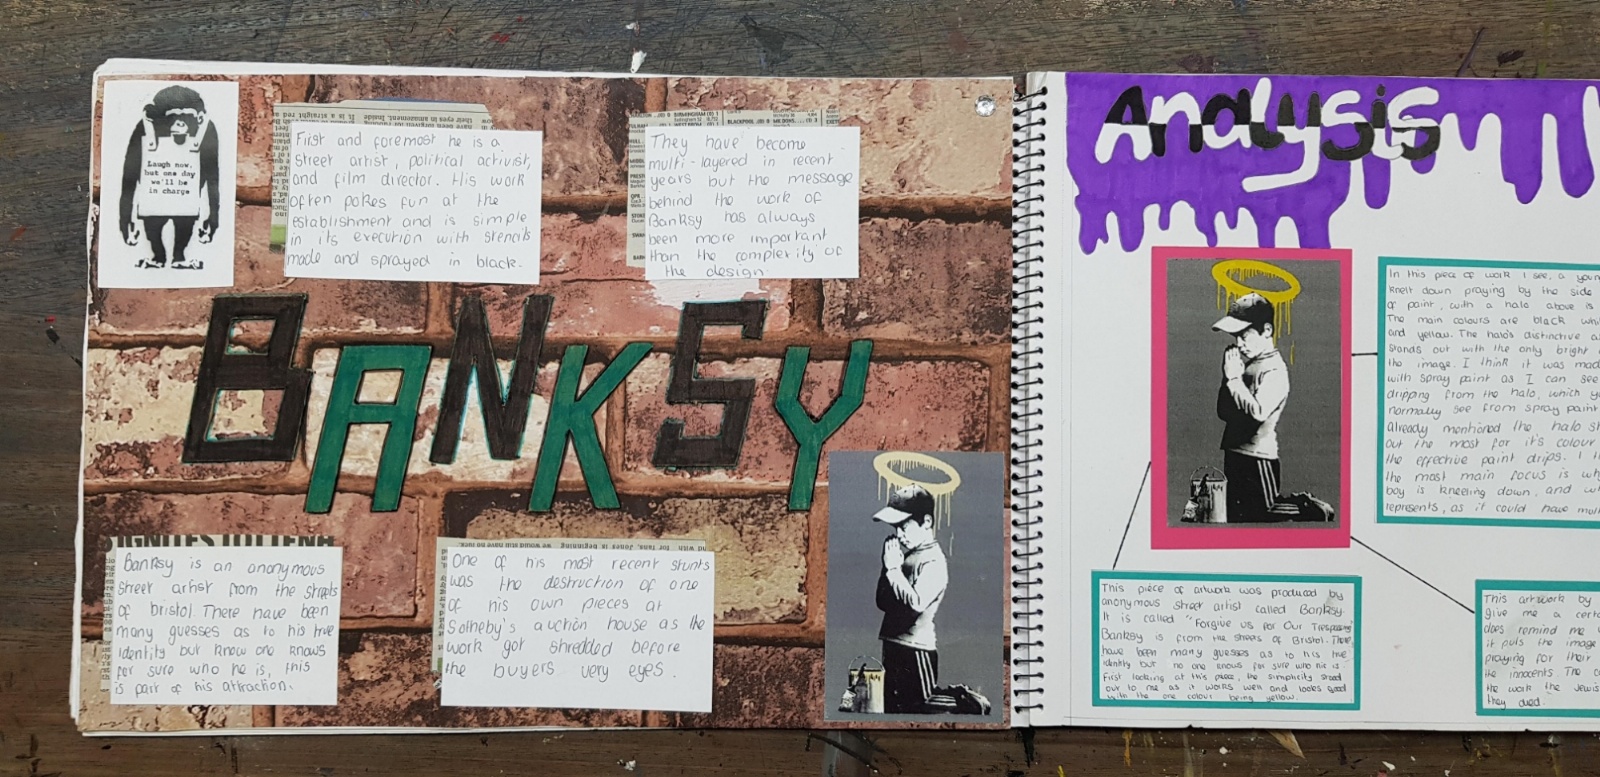 Laugh now,
but one day
we'll be
in charge
First and foremost he is a
street artist, political activist,
and film director. His work
often pokes fun at the
establishment and is simple
in its execution with stencils
made and sprayed in black.
They have become
multi-layered in recent
years but the message
behind the work of
Banksy has always
been more important
than the complexity of
the design
BANKSY
Banksy is an anonymous
street artist from the streets
of bristol. There have been
many guesses as to his true
identity but know one knows
for sure who he is, this
is part of his attraction.
One of his most recent stunts
was the destruction of one
of his own pieces at
Sotheby's auction house as the
work got shredded before
the buyers very eyes.
Analysis
In this piece of work I see, a youn
knelt down praying by the side
of paint, with a halo above is
The main colours are black whi
and yellow. The halo's distinctive
stands out with the only bright
the image. I think it was mad
with spray paint as I can see
dripping from the halo, which y
normally see from spray paint
already mentioned the halo st
out the most for it's colour
the effective paint drips. I t
the most main focus is wh
boy is kneeling down, and w
represents, as it could have mul
This piece of artwork was produced by
anonymous street artist called Banksy.
It is called "Forgive us for Our Trespassing"
Banksy is from the streets of Bristol. There
have been many guesses as to his true
identity but no one knows for sure who he is.
First looking at this piece, the simplicity stood
out to me as it works well and looks good
with the one colour being yellow.
This artwork by
give me a certa
does remind me
it puts the image
praying for their
the innocents. The
the work the Jewis
they died.